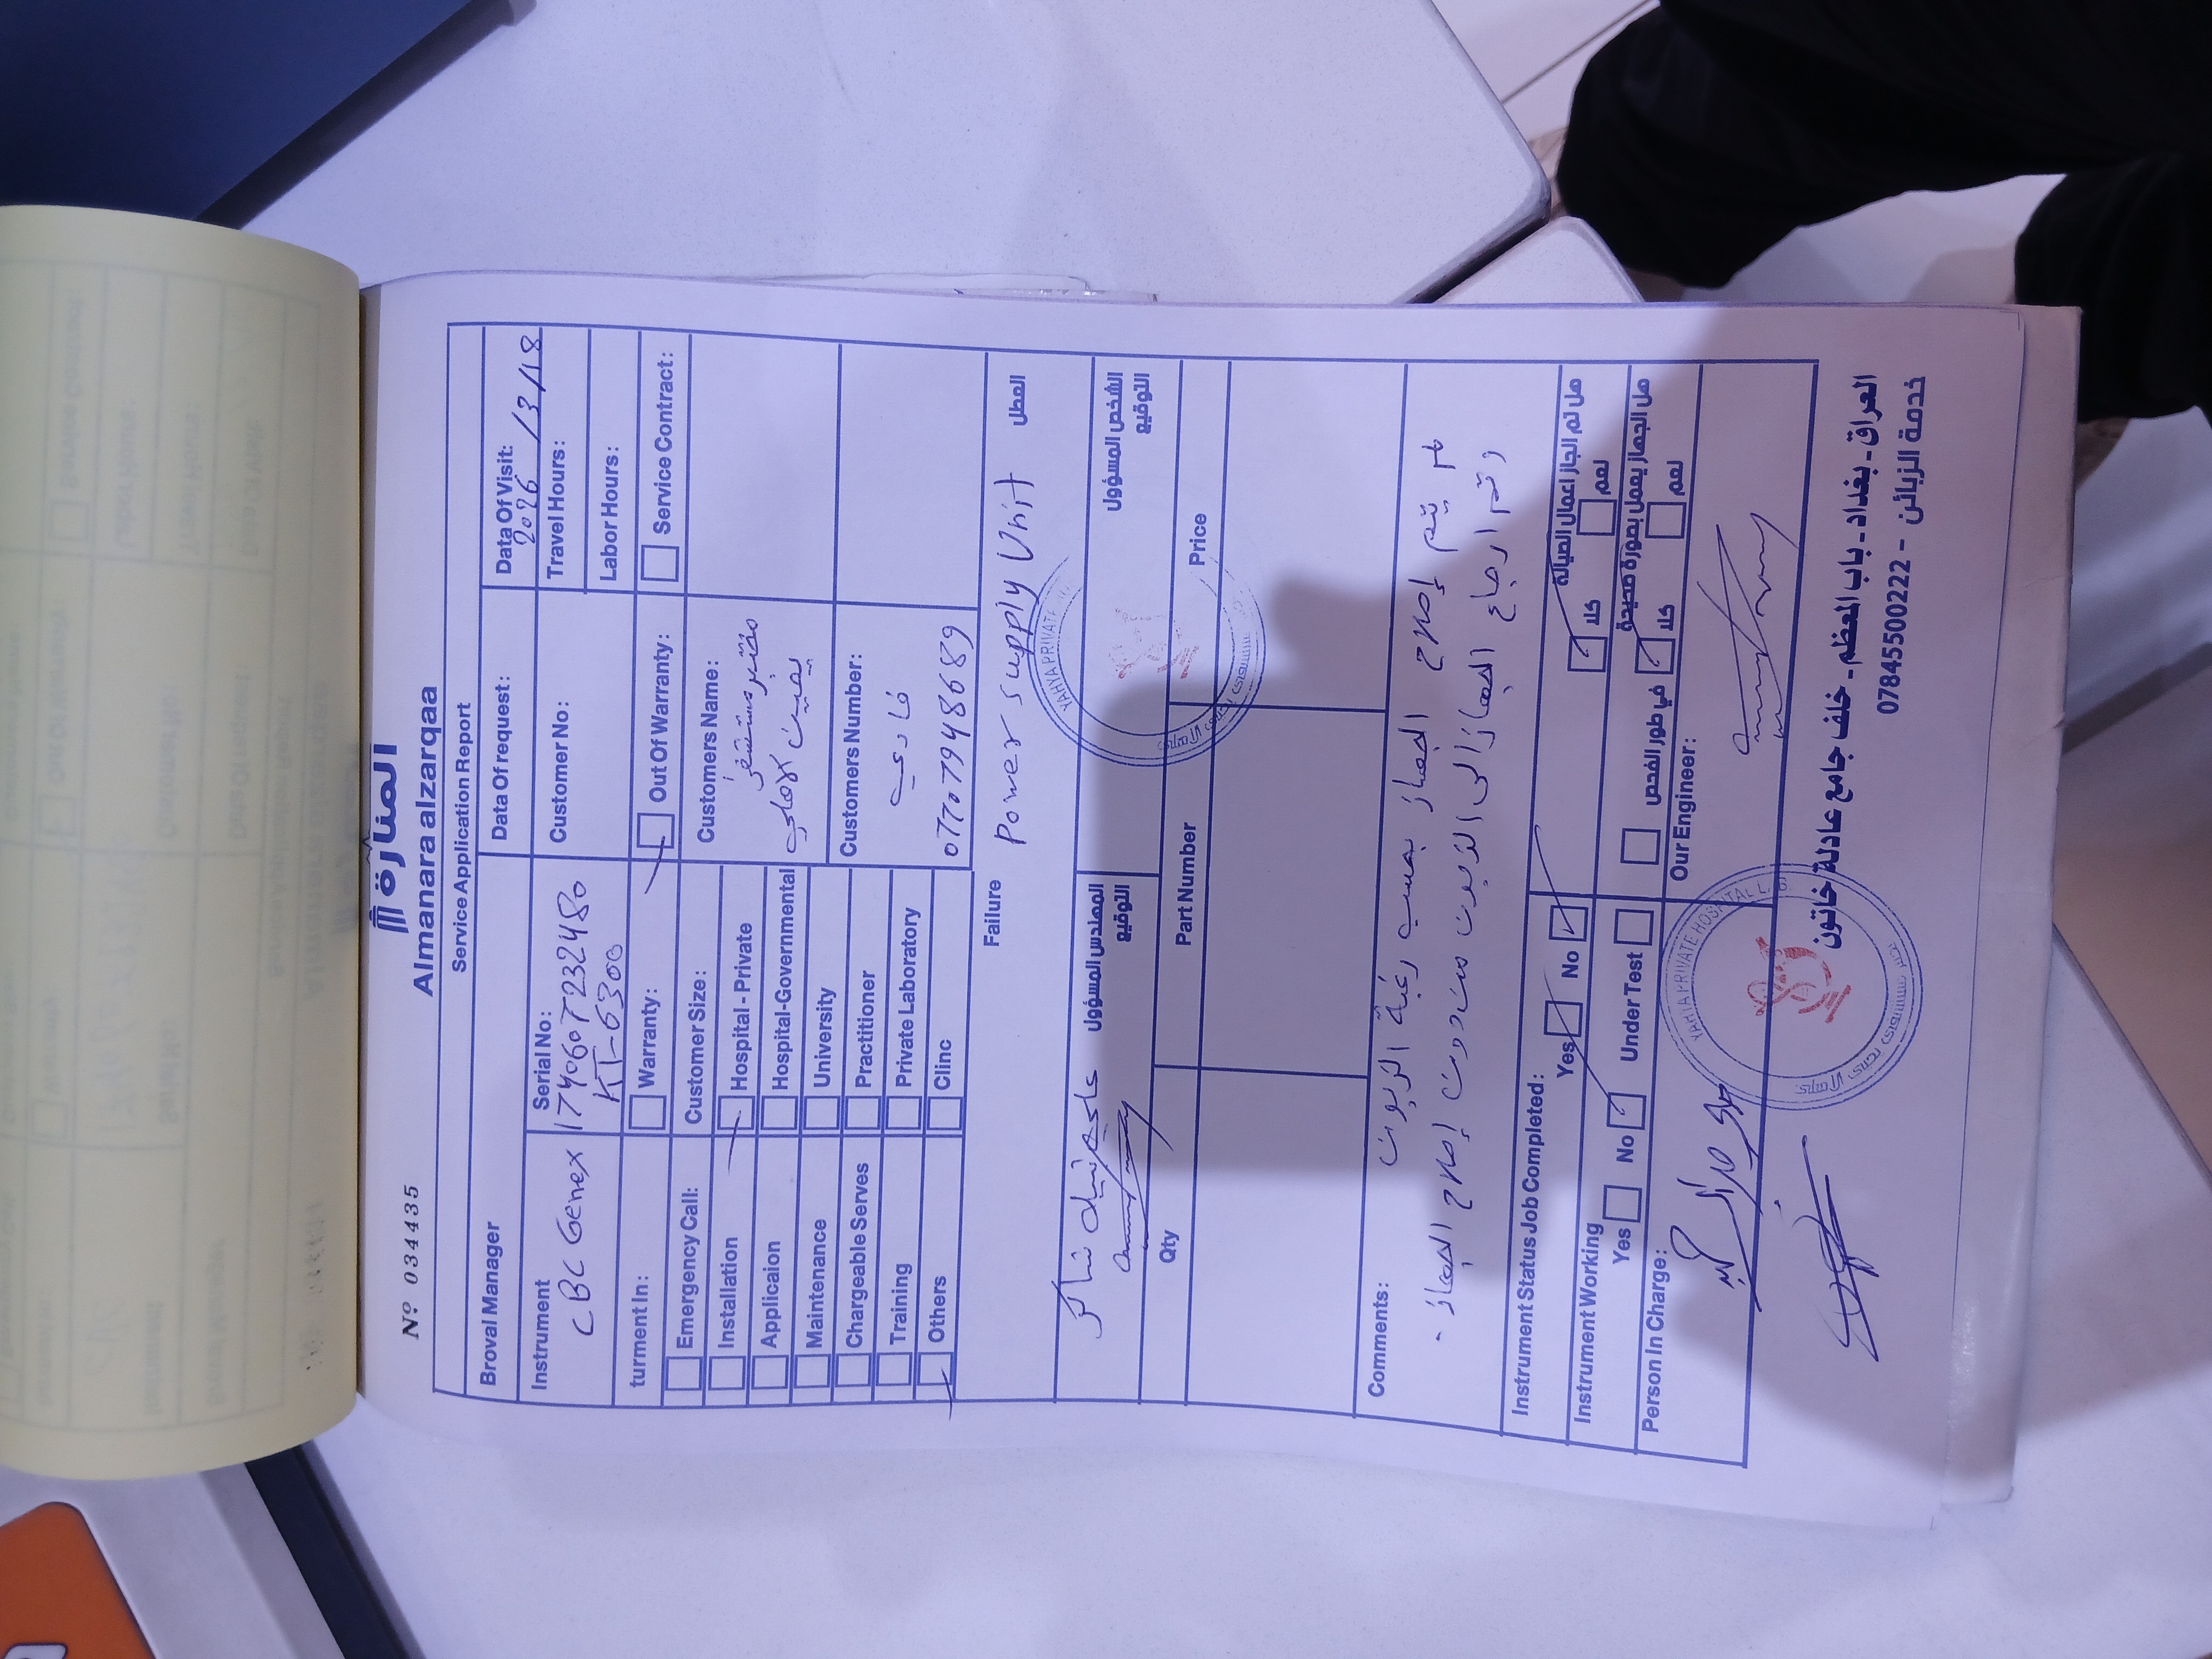 Nº 034435
المنارة
Almanara alzarqaa
Service Application Report
Broval Manager
Data Of request:
Data Of Visit:
2026/3/18
Instrument
CBC Genex
Serial No:
1740607232480
KT-6300
Customer No:
Travel Hours:
Labor Hours:
turment In:
Warranty:
Out Of Warranty:
Service Contract:
Emergency Call:
Installation
Applicaion
Maintenance
Chargeable Serves
Training
Others
Customer Size:
Hospital - Private
Hospital-Governmental
University
Practitioner
Private Laboratory
Clinc
Customers Name:
مختبر مستشفى
يحيى الاهلي
Customers Number:
07707948689
Failure
العطل
Power supply Unit
المهندس المسؤول
التوقيع
الشخص المسؤول
التوقيع
YAHYA PRIVATE
Qty
Part Number
Price
Comments:
لم يتم إصلاح الجهاز بحسب رغبة الزبون
وتم ارجاع الجهاز الى الزبون من دون إصلاح الجهاز .
Instrument Status Job Completed:
Yes
No
هل تم انجاز اعمال الصيانة
كلا
نعم
Instrument Working
Yes
No
Under Test
في طور الفحص
هل الجهاز يعمل بصورة صحيحة
كلا
نعم
Person In Charge:
Our Engineer:
YAHYA PRIVATE HOSPITAL
العراق - بغداد - باب المعظم - خلف جامع عادلة خاتون
خدمة الزبائن - 07845500222